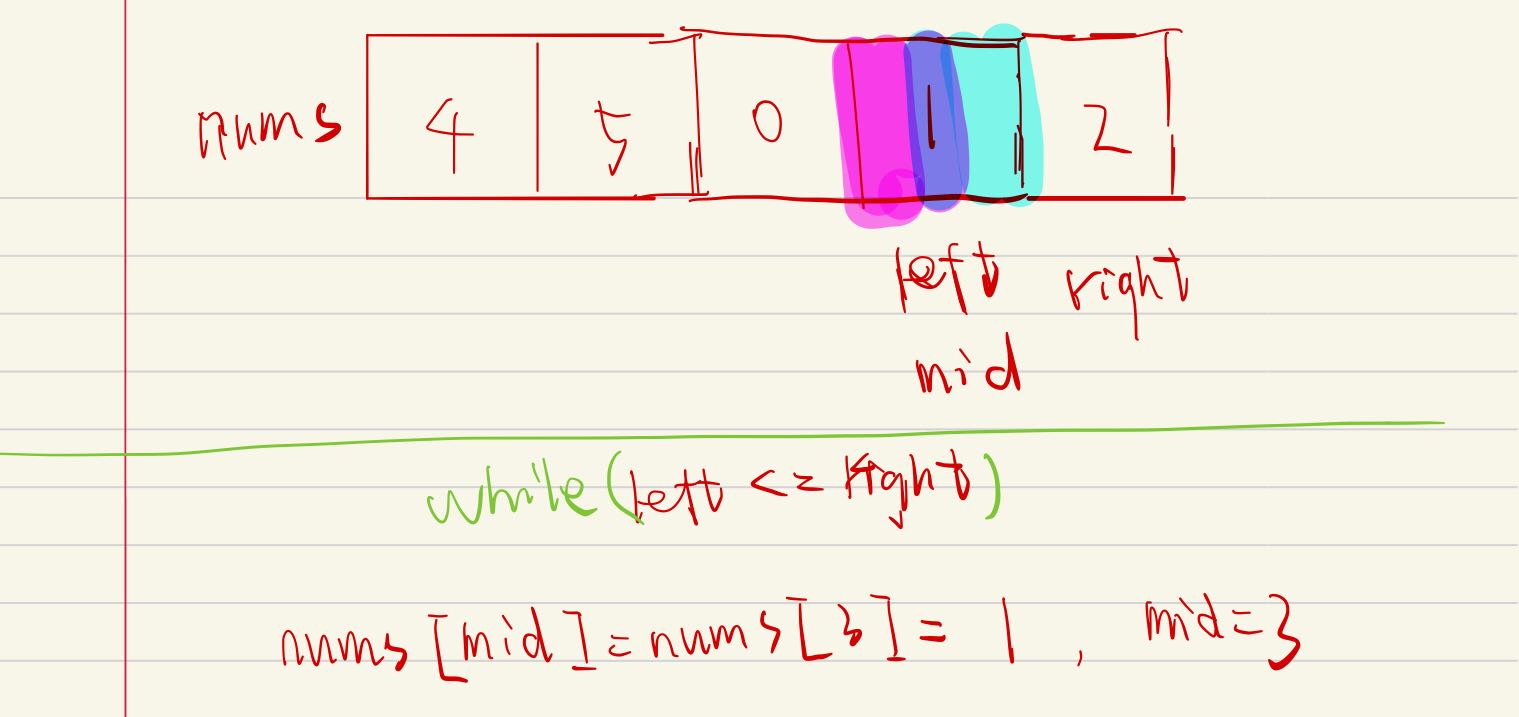 nums 4 5 0 1 2
left right
mid
while(left <= right)
nums[mid]=nums[3]= 1 , mid=3